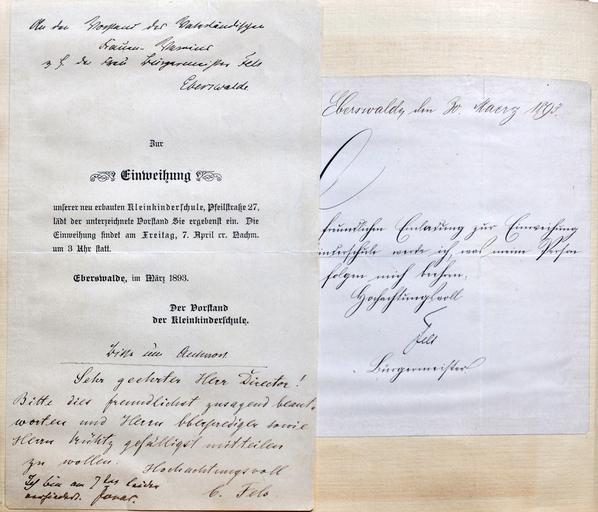 An den Vorstand des Vaterländischen
Frauen-Vereins
z. H. der Frau Bürgermeister Fels
Eberswalde
Zur
Einweihung
unserer neu erbauten Kleinkinderschule, Pfeilstraße 27,
lädt der unterzeichnete Vorstand Sie ergebenst ein. Die
Einweihung findet am Freitag, 7. April cr. Nachm.
um 3 Uhr statt.
Eberswalde, im März 1893.
Der Vorstand
der Kleinkinderschule.
Bitte um Antwort
Sehr geehrter Herr Director!
Bitte dies freundlichst zusagend beant-
worten und Herrn Oberprediger sowie
Herrn gefälligst mitteilen
zu wollen. Hochachtungsvoll
Ich bin am 7ten leider
verhindert. C. Fels
Eberswalde, den 30. Maerz 1893.
freundlichen Einladung zur Einweihung
inderschule werde ich, was meine Person
folgen mich beehren.
Hochachtungsvoll
Fels
Bürgermeister